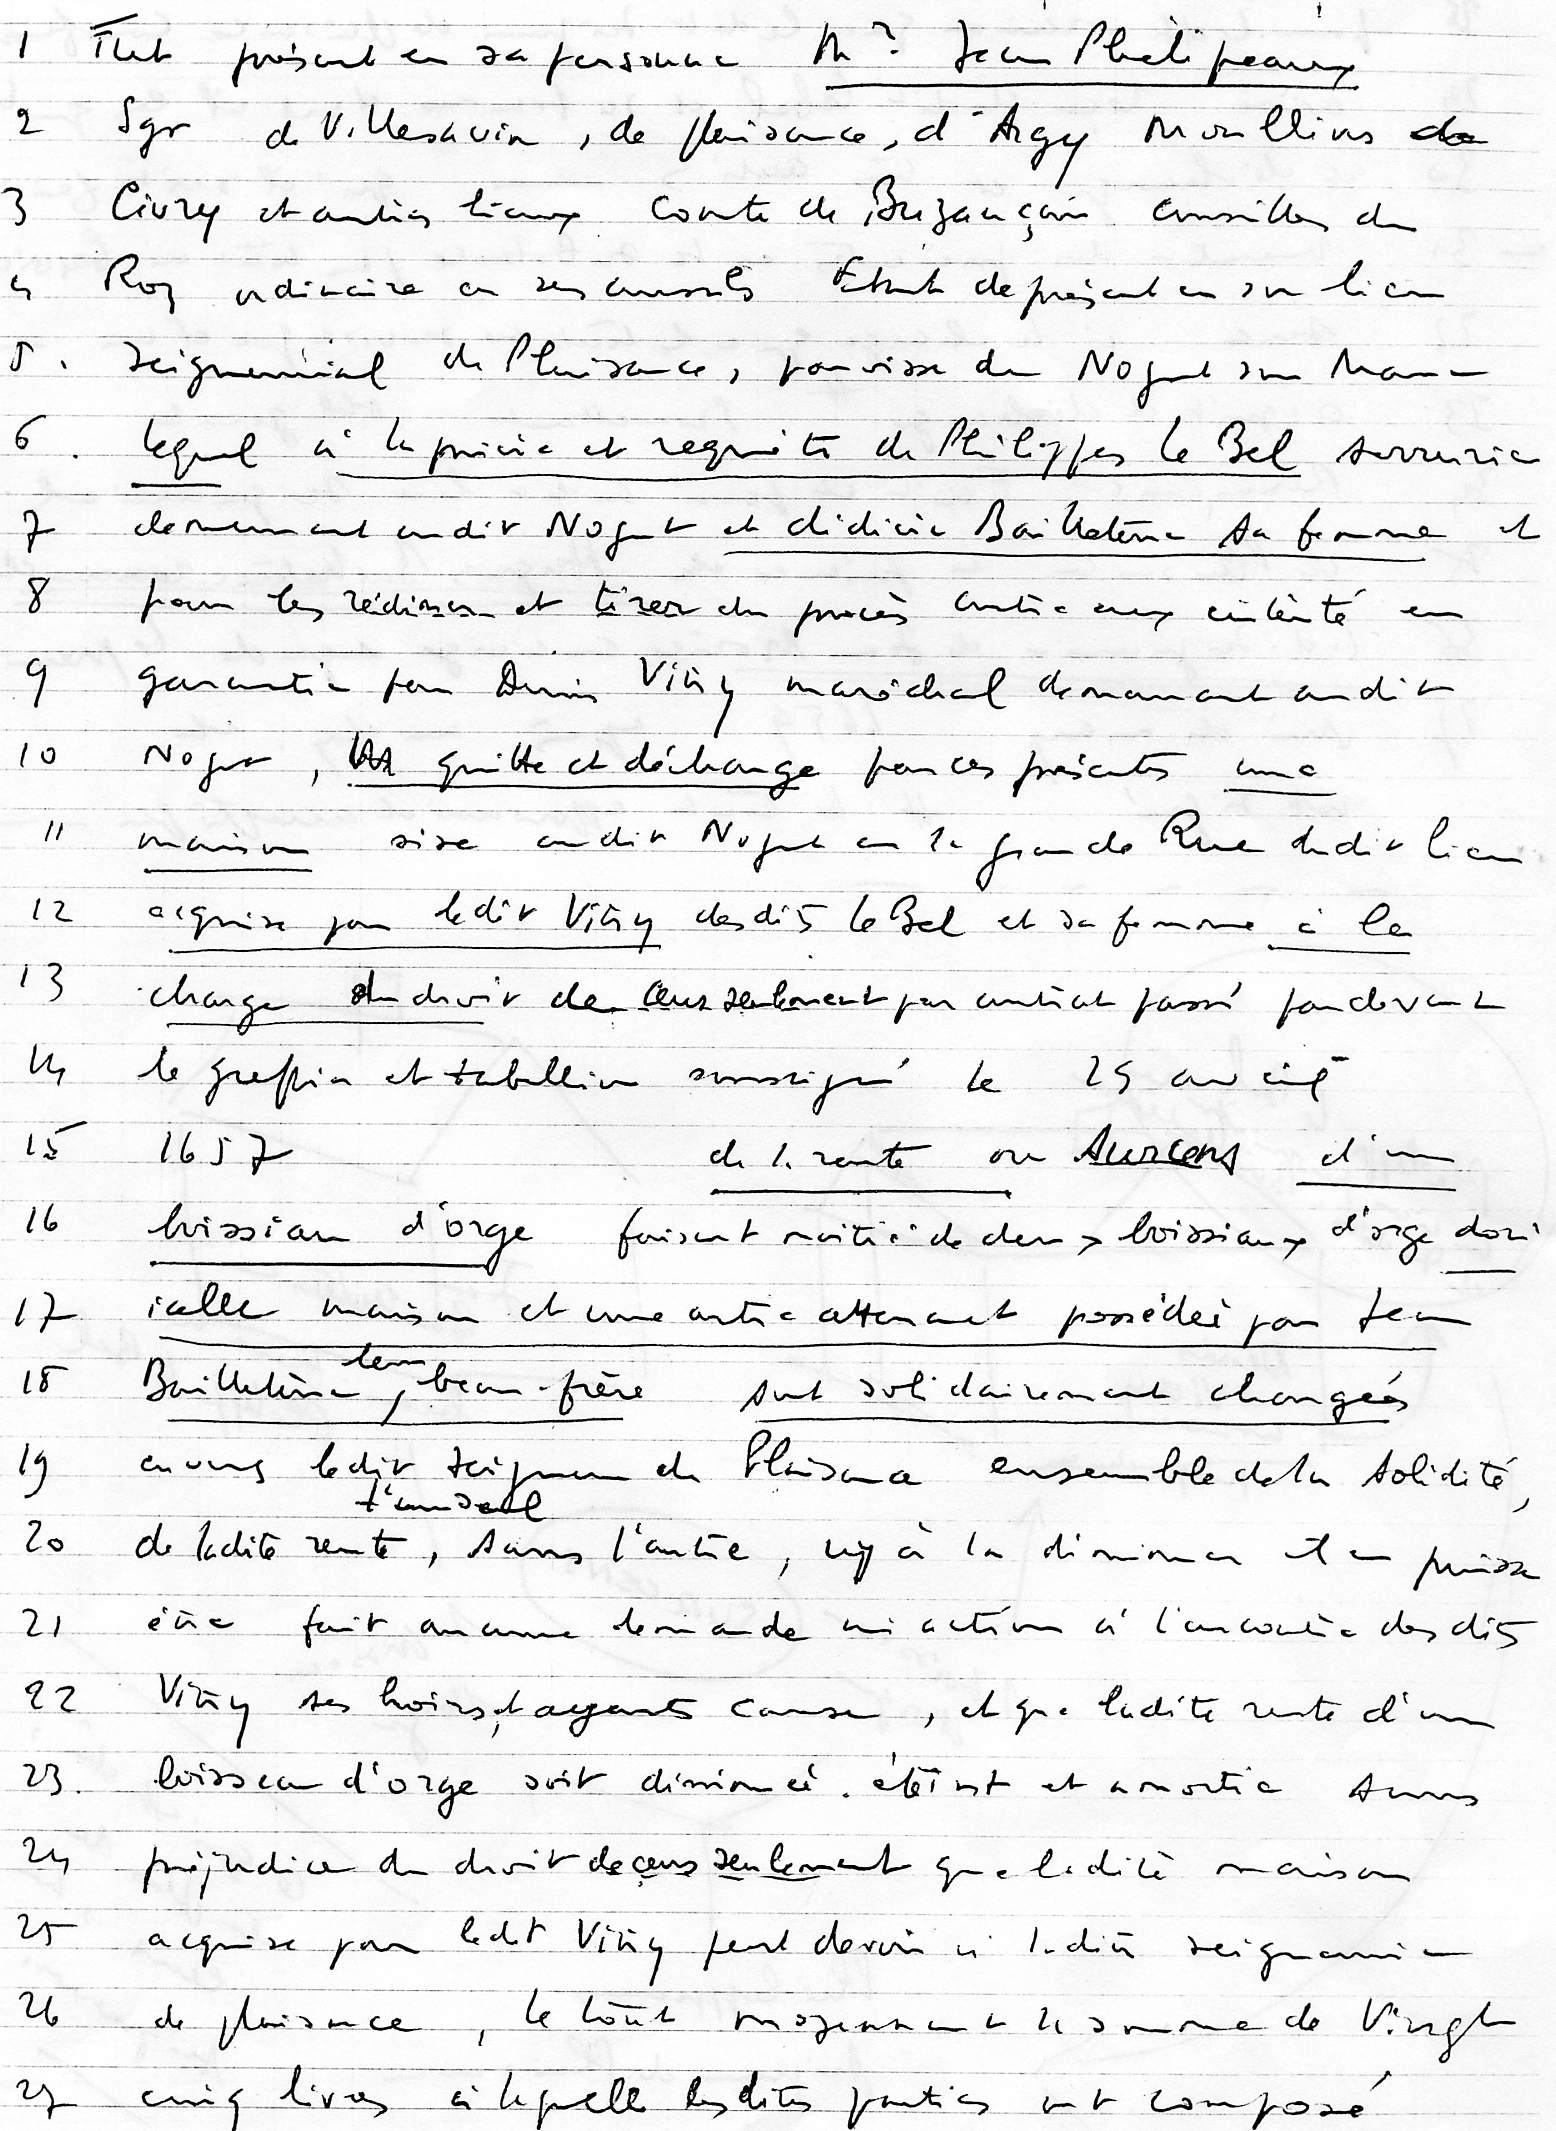 1 Fut présent en sa personne Mre Jean Phelipeaux
2 Sgr de Villesavin, de plaisance, d'Argy Moullins de
3 Civry et autres lieux Comte de Buzançois conseiller du
4 Roy ordinaire en ses conseils Etant de présent en son lieu
5. seigneurial de Plaisance, parroisse du Nogent sur Marne
6. lequel à la prière et requête de Philippes le Bel serrurier
7 demeurant audit Nogent et didière Bailletène sa femme et
8 pour les rédimer et tirer du procès contre eux intenté en
9 garantie par Denis Vitry maréchal demeurant audit
10 Nogent, quitte et décharge par ces présentes une
11 maison sise audit Nogent en la grande Rue dudit lieu
12 acquise par ledit Vitry desdits le Bel et sa femme à la
13 charge du droit de cens seulement par contrat passé pardevant
14 le greffier et tabellion soussigné le 25
15 1657 de la rente ou surcens d'un
16 boissiau d'orge faisant moitié de deux boissiaux d'orge dont
17 icelle maison et une autre attenant possédée par Jean
18 Bailletène, leur beau-frère sont solidairement chargées
19 envers ledit seigneur de Plaisance ensemble de la solidité,
l'un seul
20 de ladite rente, sans l'autre, à la diminuer et en puisse
21 être fait aucune demande ni action à l'encontre desdits
22 Vitry ses hoirs et ayants cause, et que ladite rente d'un
23. boisseau d'orge soit diminuée. éteint et amortie sans
24 préjudice du droit de cens seulement que ladite maison
25 acquise par ledit Vitry peut devoir à ladite seigneurie
26 de plaisance, le tout moyennant la somme de Vingt
27 cinq livres à laquelle lesdites parties ont composé